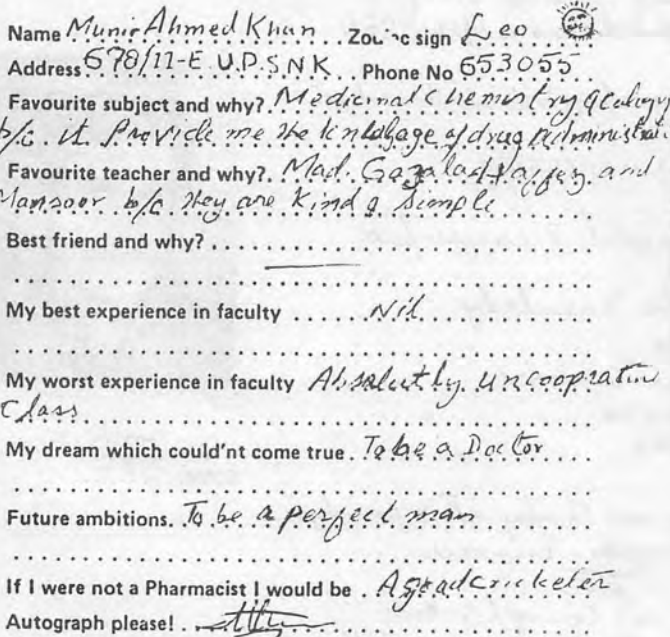 Name Munir Ahmed Khan Zodiac sign Leo
Address 678/11-E U.P.S.N.K. Phone No 653055
Favourite subject and why? Medicinal Chemistry
b/c. it Provide me the knlolgage of drug administration
Favourite teacher and why?. Mad. Gazala and
Mansoor b/c they are Kind & Simple
Best friend and why?
My best experience in faculty Nil
My worst experience in faculty Absalutly uncooprative
Class
My dream which could'nt come true. To be a Doctor
Future ambitions. To be a perfect man
If I were not a Pharmacist I would be. A great cricketer
Autograph please!